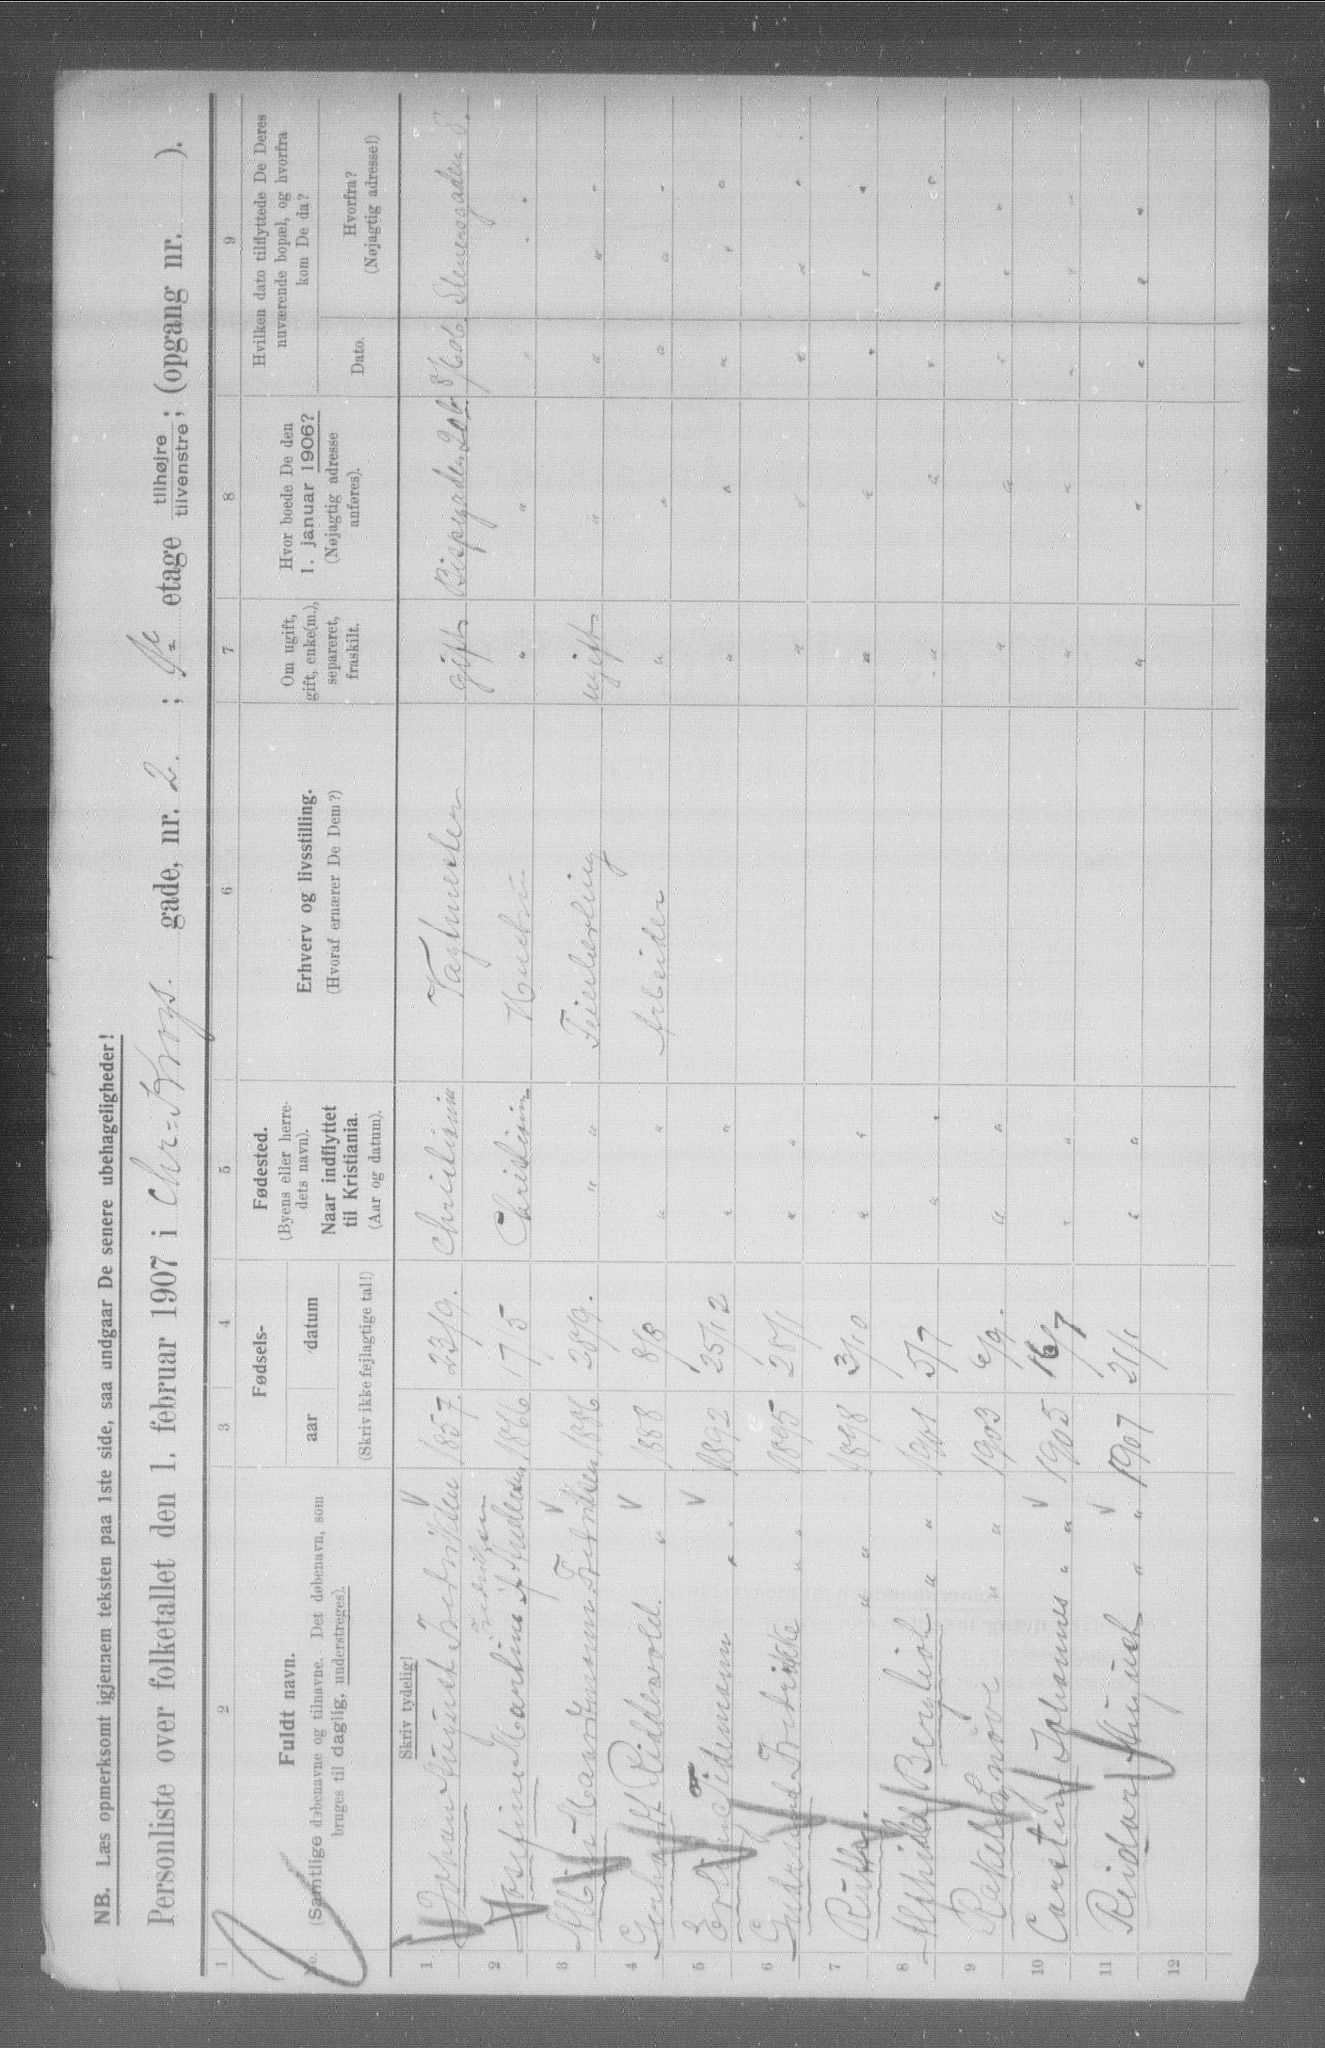 NB. Læs opmerksomt igjennem teksten paa 1ste side, saa undgaar De senere ubehageligheder!
Personliste over folketallet den 1. februar 1907 i Chr. Krogs. gade, nr. 2. ; etage tilhøjre tilvenstre; (opgang nr. ).
1 2 3 4 5 6 7 8 9
No.
Fuldt navn.
(Samtlige døbenavne og tilnavne. Det døbenavn, som
bruges til daglig, understreges).
Fødsels-
aar datum
(Skriv ikke fejlagtige tal!)
Fødested.
(Byens eller herre-
dets navn).
Naar indflyttet
til Kristiania.
(Aar og datum).
Erhverv og livsstilling.
(Hvoraf ernærer De Dem?)
Om ugift,
gift, enke(m.),
separeret,
fraskilt.
Hvor boede De den
1. januar 1906?
(Nøjagtig adresse
anføres).
Hvilken dato tilflyttede De Deres
nuværende bopæl, og hvorfra
kom De da?
Dato.
Hvorfra?
(Nøjagtig adresse!)
Skriv tydelig!
1 Johan August Fredriksen 1857 23/9. Christiania Tagtmester gift Bispegaden 20b 8/6 06 Stenersgaden 8.
Fredriksen
2 Josefine Martine f Andersen 1866 17/5 Christiania Hustru " " " " "
3 Albin Hansemann Fredriksen 1886 28/9. " " Feierlærling ugift " " " "
4 Gerhard Riddervold. " 1888 8/8 " " Arbeider " " " " "
5 Erling Tidemann " " 1892 25/12 " " " " " " "
6 Gudrun Fredrikke " " 1895 28/1 " " " " " " "
7 Ruth. " " 1898 3/10 " " " " " " "
8 Alfhild Bergliot " " 1901 5/7 " " " " " " "
9 Rakel Snøve " " 1903 6/9. " " " " " " "
10 Carsten Johannes " " 1905 16/7 " " " " " " "
11 Reidar August " " 1907 21/1 " " " " " " "
12